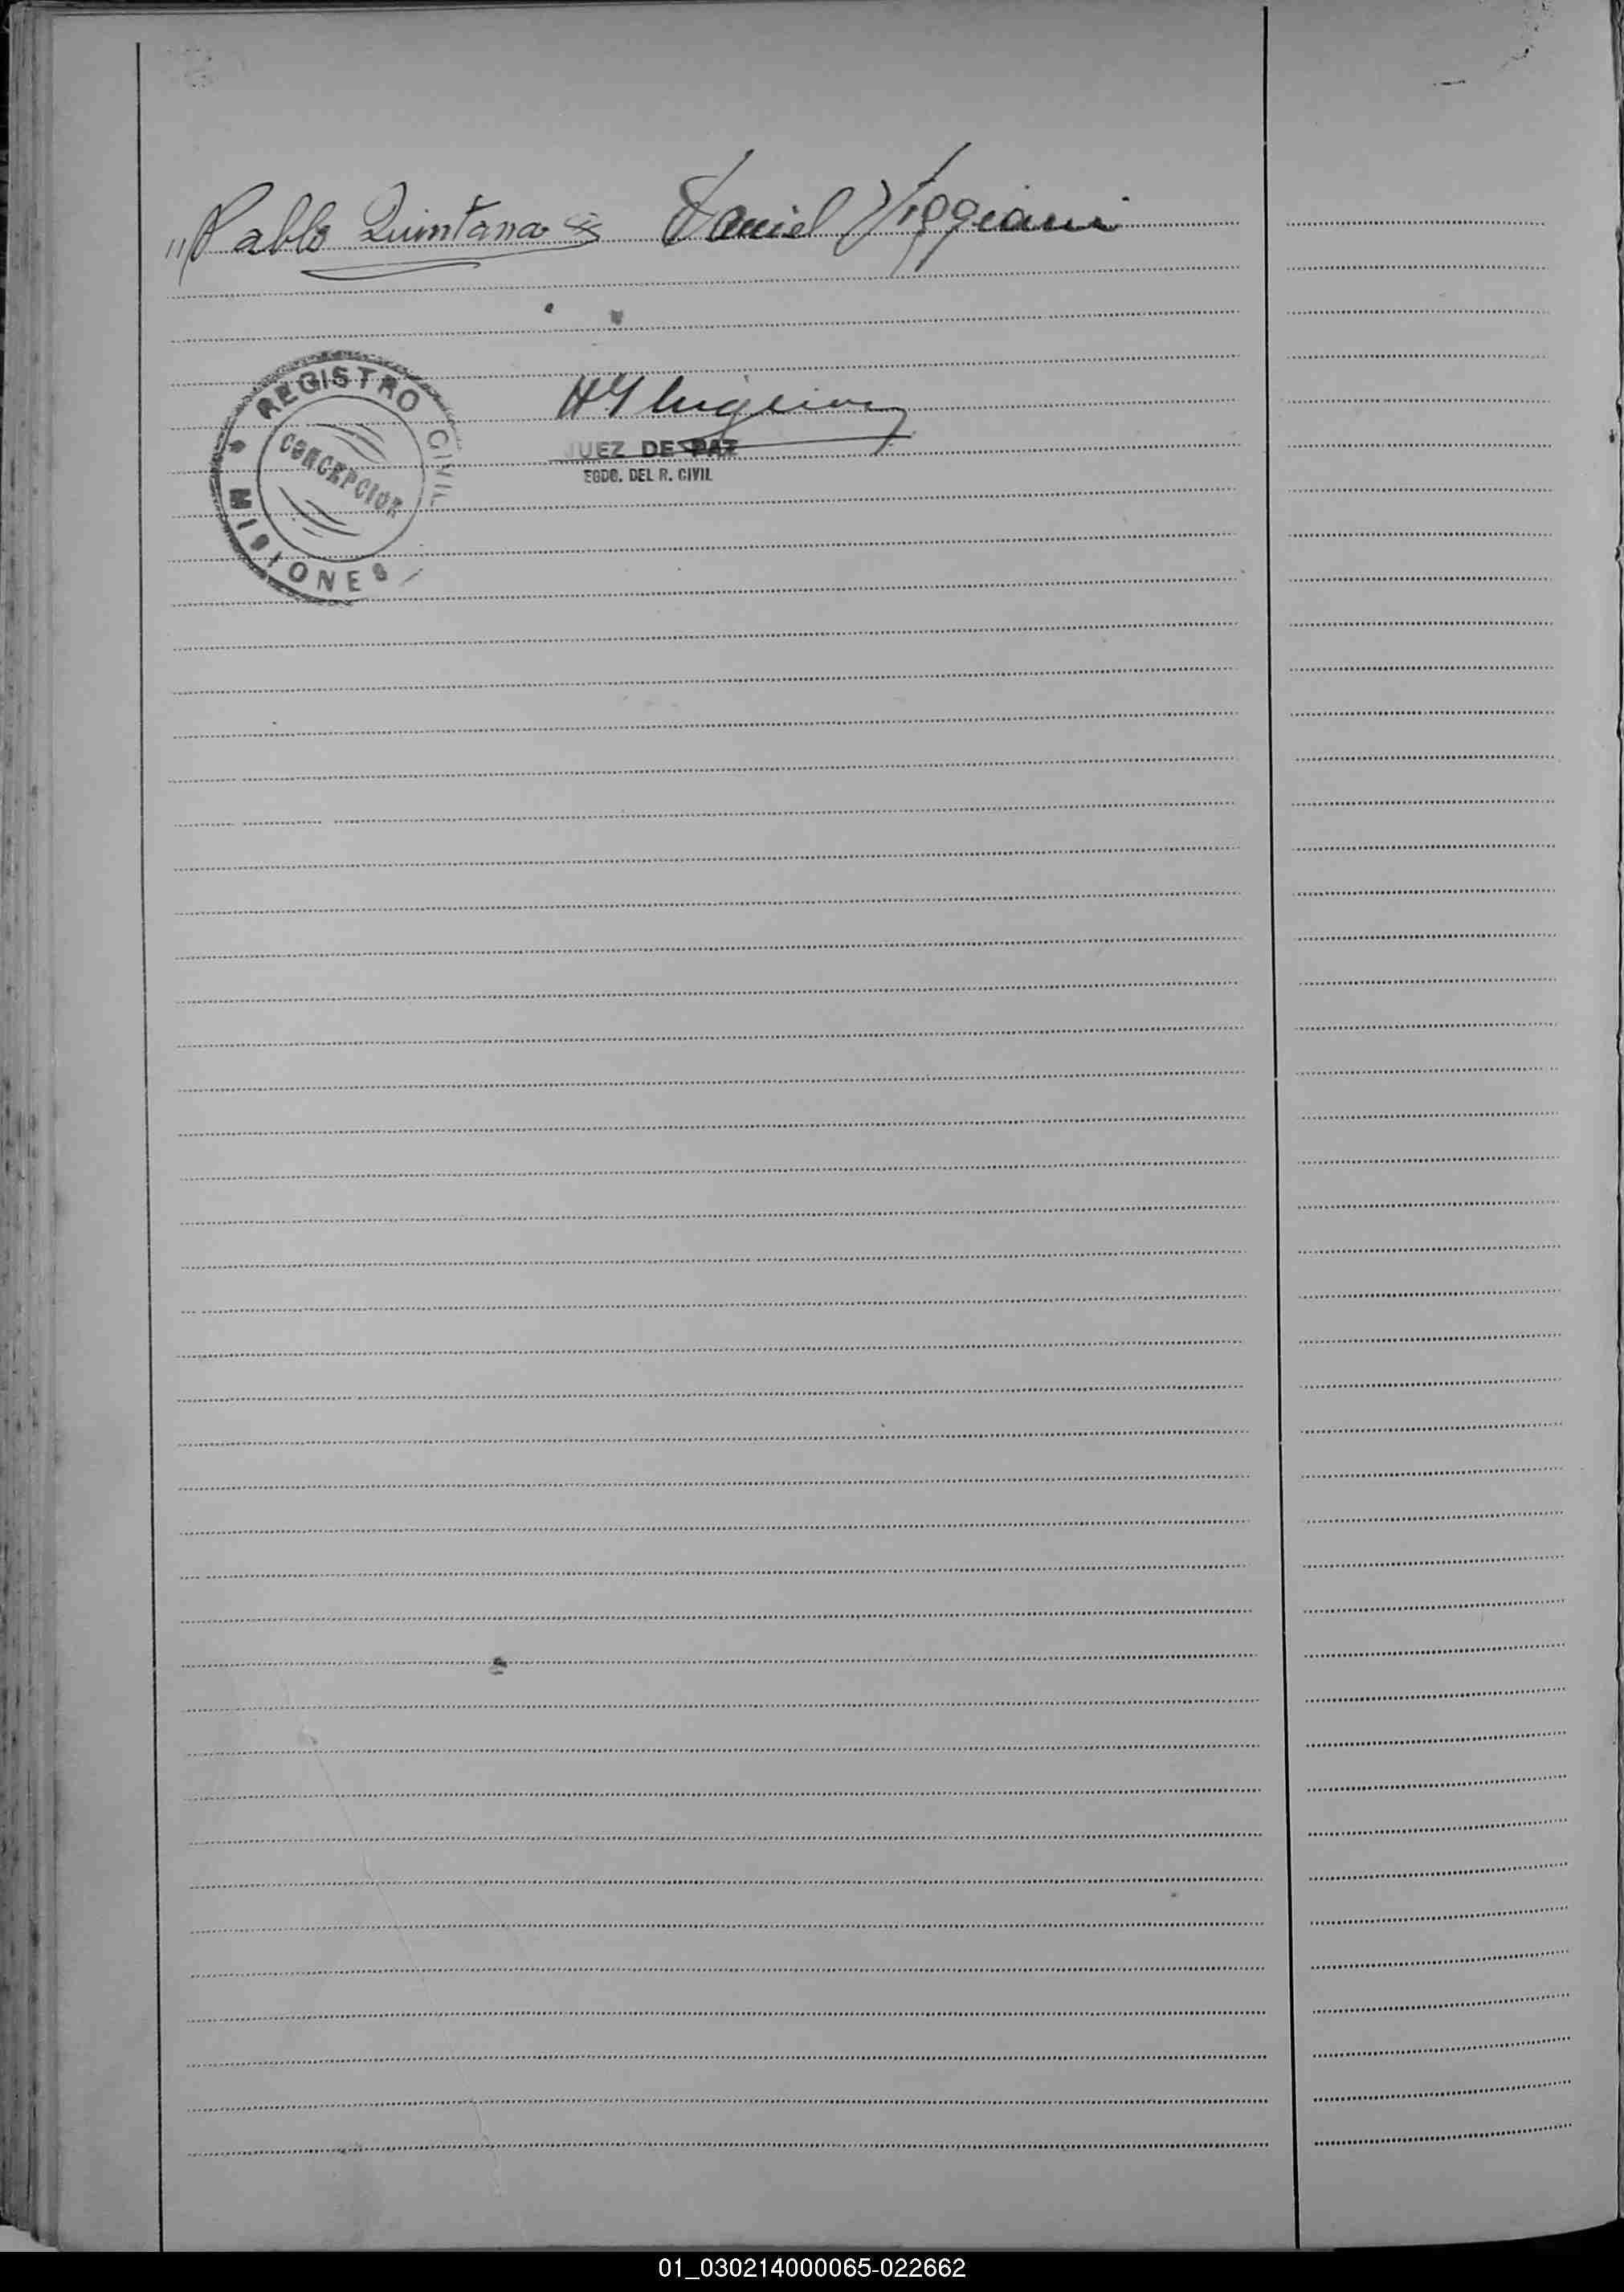 "Pablo Quintana Daniel Viggiani
REGISTRO CIVIL
CONCEPCION
MISIONES
JUEZ DE PAZ
EGDO. DEL R. CIVIL
01_030214000065-022662